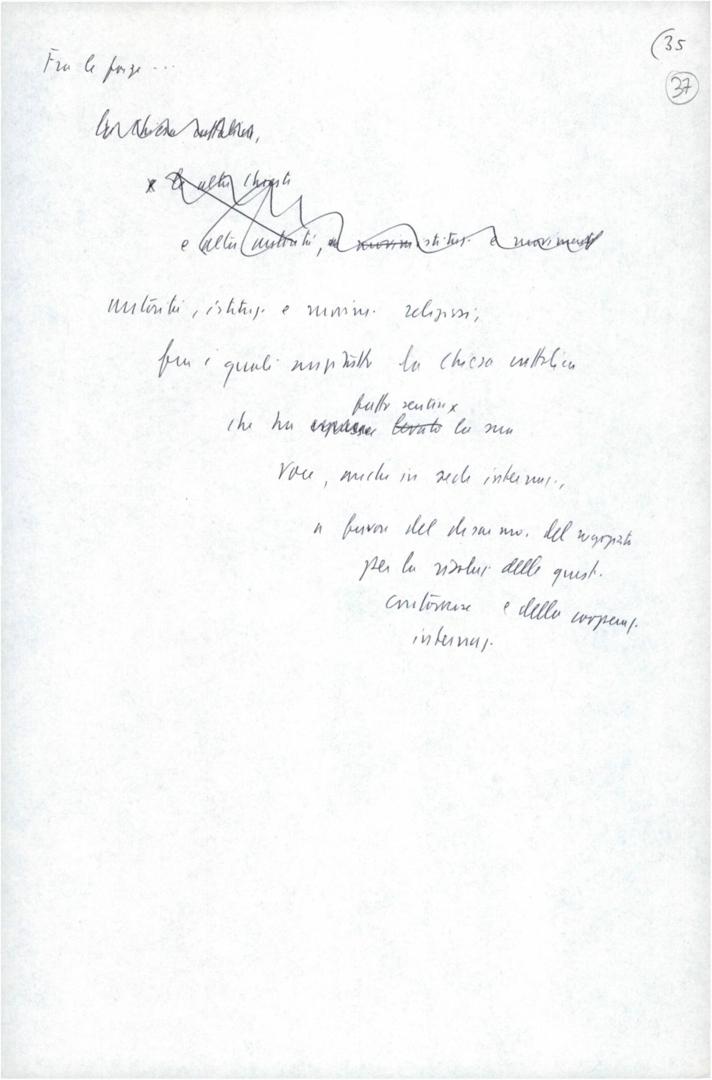 (35
37
Fra le forze ...
la chiesa cattolica,
x le altre chiese
e altre autorità, istituz. e movimenti
autorità, istituz. e movim. religiosi,
fra i quali anzitutto la chiesa cattolica
fatto sentire x
che ha levato la sua
voce, anche in sede internaz.,
a favore del disarmo, del negoziato
per la risoluz. delle quest.
controverse e della cooperaz.
internaz.